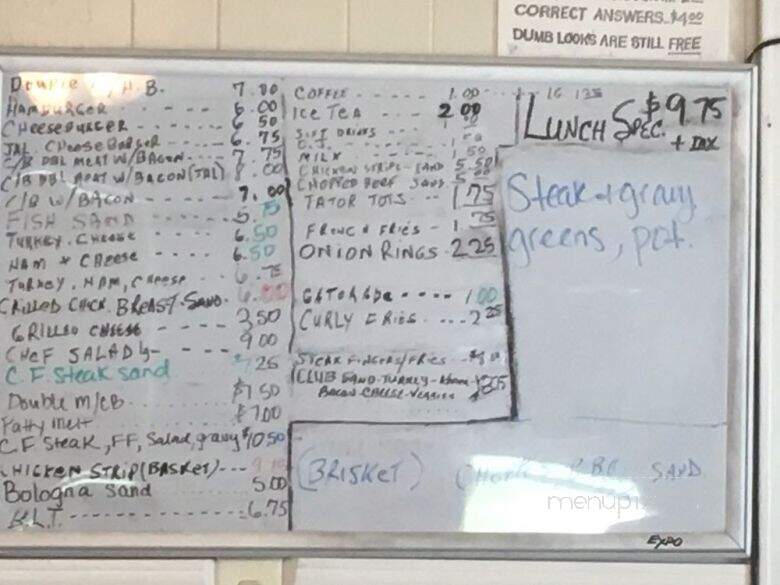 CORRECT ANSWERS..$4.00
DUMB LOOKS ARE STILL FREE
Double H.B. 7.00
HAMBURGER - - - - - 6.00
CHEESEBURGER - - - - 6.50
JAL. CHEESEBURGER - - - 6.75
C/B DBL MEAT W/BACON - - - 7.75
C/B DBL MEAT W/BACON (JAL) 8.00
C/B W/BACON - - - - - 7.00
FISH SAND - - - - 5.75
TURKEY. CHEESE - - - - 6.50
HAM & CHEESE - - - - 6.50
TURKEY. HAM, CHEESE - - - 6.75
GRILLED CHICK. BREAST. SAND.
GRILLED CHEESE - - - - 3.50
CHEF SALAD - - - - 9.00
C.F. Steak sand 25
Double M/CB $7.50
Patty melt $7.00
C.F Steak, FF, Salad, gravy $10.50
CHICKEN STRIP (BASKET)---
Bologna sand 5.00
B.L.T. - - - - - - - - - - 6.75
COFFEE - - - - 1.00
ICE TEA - - - 2.00
SOFT DRINKS
O.J.
MILK - - - - 1.50
CHICKEN STRIPS - SAND 5.50
CHOPPED BEEF SAND
TATOR TOTS - - - 1.75
FRENCH FRIES - - 1.75
ONION RINGS - 2.25
GATORADE - - - - 1.00
CURLY FRIES - - - 2.25
STEAK FINGERS/FRIES
CLUB SAND-TURKEY-HAM
BACON-CHEESE-VEGGIES
LUNCH SPEC. $9.75
+ TAX
Steak + gravy
greens, pot.
(BRISKET) SAND
EXPO